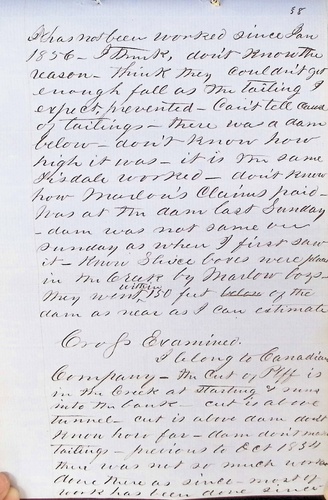 38
It has not been worked since Jan
1856 - I think, don't know the
reason - think they couldn't get
enough fall as the tailing I
expect prevented - Can't tell cause
of tailings - there was a dam
below - don't know how
high it was - it is the same
Tisdale worked - don't know
how Marlow's Claims paid -
was at the dam last Sunday
- dam was not same on
Sunday as when I first saw
it - Know Sluice boxes were placed
in the Creek by Marlow boys -
they went within 150 feet below of the
dam as near as I can estimate
Cross Examined.
I belong to Canadian
Company - the Cut of Plff is
in the Creek at starting & runs
into the bank - cut is above
tunnel - cut is above dam don't
know how far - dam don't
tailings - previous to Oct 1854
there was not so much work
done there as since - most of
work has been done since